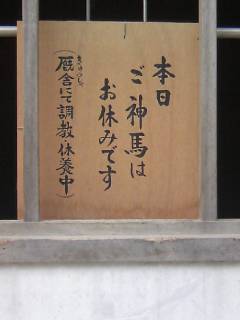 本日
ご神馬は
お休みです
(厩舎にて調教休養中)
きゅうしゃ